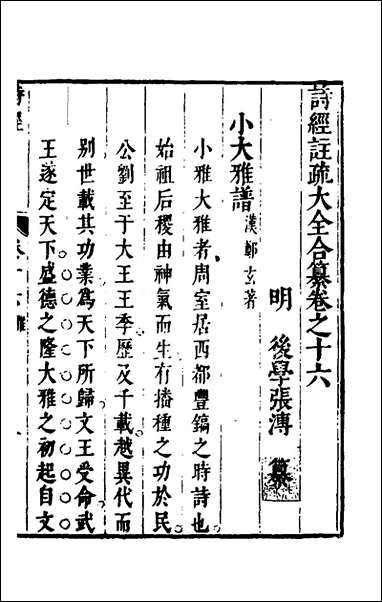 詩經註疏大全合纂卷之十六
明 後學張溥 纂
小大雅譜 漢鄭玄著
小雅大雅者周室居西都豐鎬之時詩也
始祖后稷由神氣而生有播種之功於民
公劉至于大王王季歷及千載越異代而
別世載其功業爲天下所歸文王受命武
王遂定天下盛德之隆大雅之初起自文
詩經